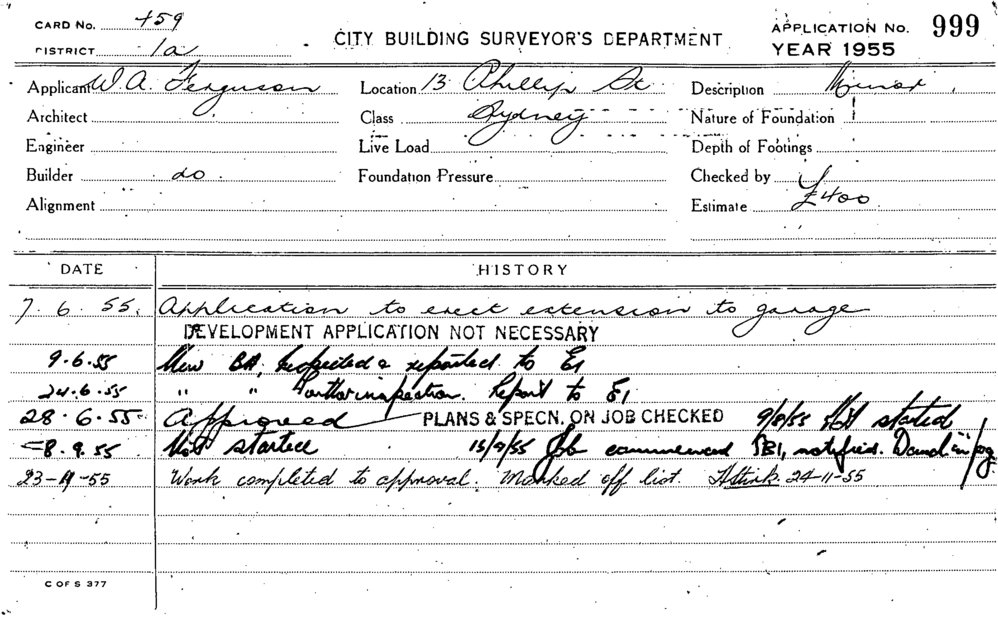 CARD No. 459
DISTRICT 1a
CITY BUILDING SURVEYOR'S DEPARTMENT
APPLICATION No. 999
YEAR 1955
Applicant W. A. Ferguson Location 13 Phillip St Description Minor
Architect Class Sydney Nature of Foundation
Engineer Live Load Depth of Footings
Builder do. Foundation Pressure Checked by
Alignment Estimate £400
DATE HISTORY
7. 6. 55. Application to erect extension to garage
DEVELOPMENT APPLICATION NOT NECESSARY
9.6.55 New BA. Inspected & reported to E1
24.6.55 " " Further inspection. Report to E1
28.6.55. Approved PLANS & SPECN. ON JOB CHECKED 9/8/55 Not started
8.9.55 Not started 15/9/55 Job commenced BI, notified.
23-11-55 Work completed to approval. Marked off list. 24-11-55
C OF S 377